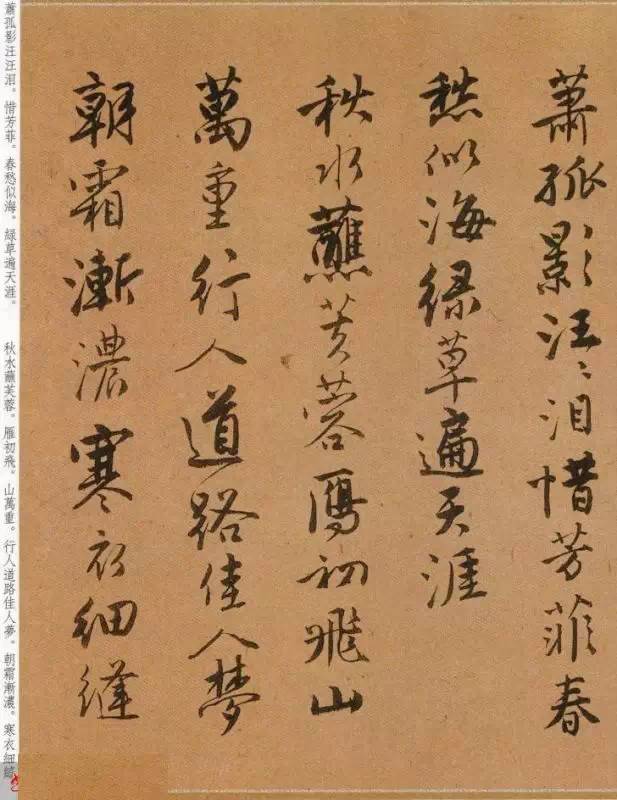 蕭孤影汪汪泪惜芳菲春
愁似海绿草遍天涯
秋水蘸芙蓉鴈初飛山
萬重行人道路佳人夢
朝霜漸濃寒衣細縫
蕭孤影汪汪泪。惜芳菲。春愁似海。緑草遍天涯。
秋水蘸芙蓉。雁初飛。山萬重。行人道路佳人夢。朝霜漸濃。寒衣細縫